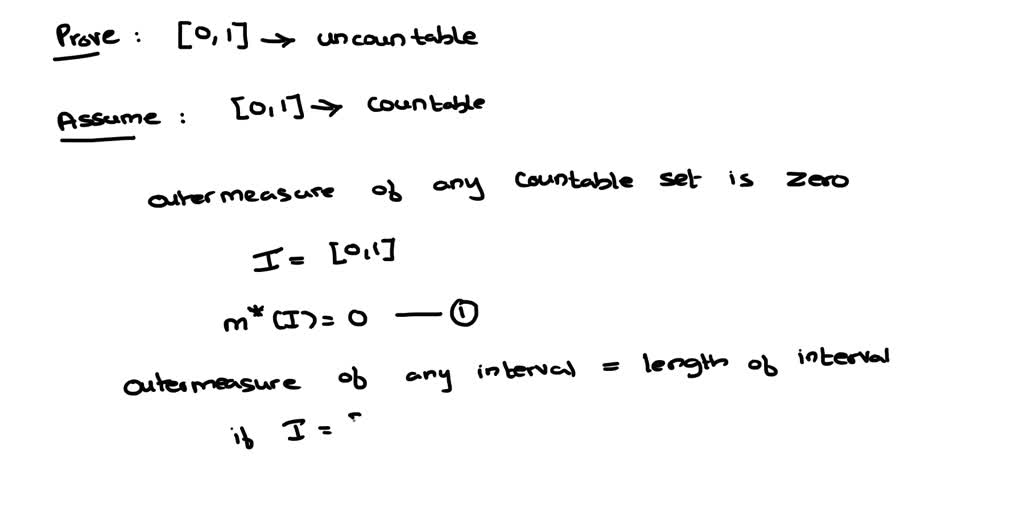 Prove : [0,1] → uncountable
Assume : [0,1] → countable
outermeasure of any countable set is zero
I = [0,1]
m*(I) = 0 — ①
outermeasure of any interval = length of interval
if I =